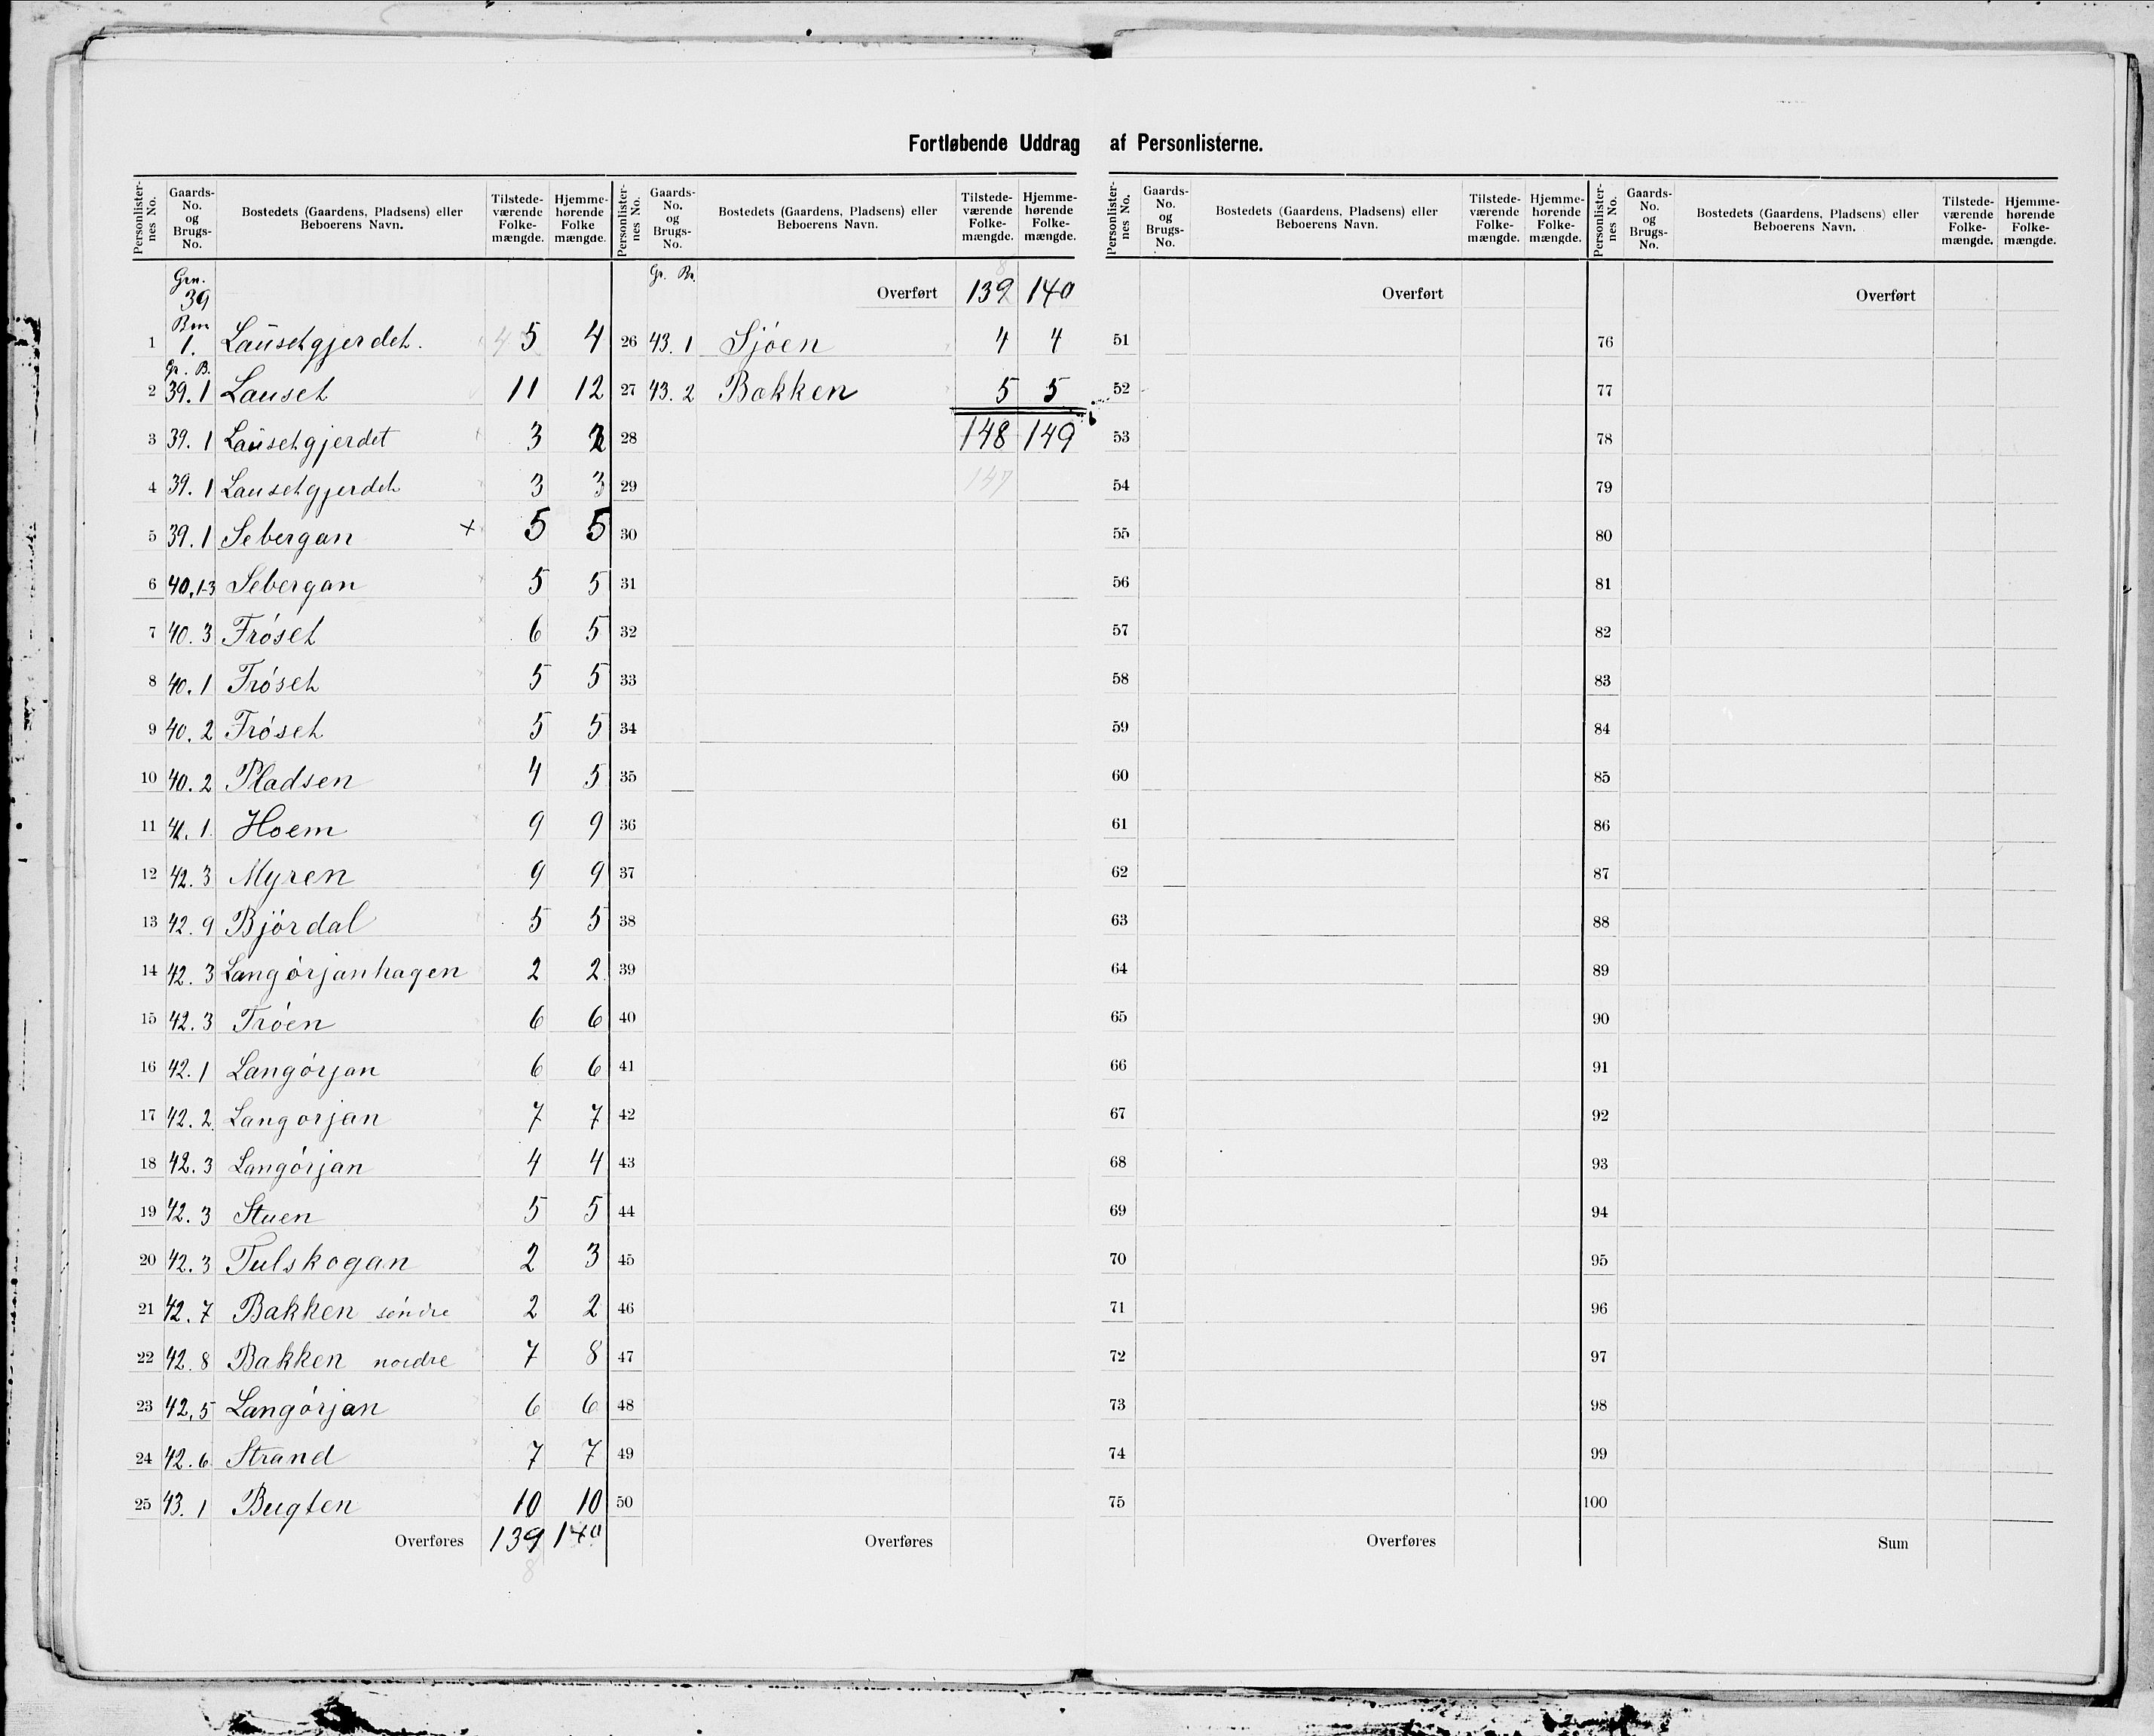 Fortløbende Uddrag af Personlisterne.
Personlister-nes No. Gaards-No. og Brugs-No. Bostedets (Gaardens, Pladsens) eller Beboerens Navn. Tilstede-værende Folke-mængde. Hjemme-hørende Folke mængde.
Grn. 39 Brn
1 1. Lausetgjerdet. 5 4
Gr. B.
2 39.1 Lauset 11 12
3 39.1 Lausetgjerdet 3 2
4 39.1 Lausetgjerdet 3 3
5 39.1 Sebergan × 5 5
6 40,1-3 Sebergan 5 5
7 40.3 Frøset 6 5
8 40.1 Frøset 5 5
9 40.2 Frøset 5 5
10 40.2 Pladsen 4 5
11 41.1 Hoem 9 9
12 42.3 Myren 9 9
13 42.9 Bjørdal 5 5
14 42.3 Langørjanhagen 2 2
15 42.3 Trøen 6 6
16 42.1 Langørjan 6 6
17 42.2 Langorjan 7 7
18 42.3 Langørjan 4 4
19 42.3 Stuen 5 5
20 42.3 Tulskogan 2 3
21 42.7 Bakken søndre 2 2
22 42.8 Bakken nordre 7 8
23 42,5 Langørjan 6 6
24 42.6 Strand 7 7
25 43.1 Bugten 10 10
Overføres 139 140
8
Personlister-nes No. Gaards-No. og Brugs-No. Bostedets (Gaardens, Pladsens) eller Beboerens Navn. Tilstede-værende Folke-mængde. Hjemme-hørende Folke-mængde.
8
Gr. Br. Overført 139 140
26 43.1 Sjøen 4 4
27 43.2 Bakken 5 5
28 148 149
29 147
30
31
32
33
34
35
36
37
38
39
40
41
42
43
44
45
46
47
48
49
50
Overføres
Personlister-nes No. Gaards-No. og Brugs-No. Bostedets (Gaardens, Pladsens) eller Beboerens Navn. Tilstede-værende Folke-mængde. Hjemme-hørende Folke-mængde.
Overført
51
52
53
54
55
56
57
58
59
60
61
62
63
64
65
66
67
68
69
70
71
72
73
74
75
Overføres
Personlister-nes No. Gaards-No. og Brugs-No. Bostedets (Gaardens, Pladsens) eller Beboerens Navn. Tilstede-værende Folke-mængde. Hjemme-hørende Folke-mængde.
Overført
76
77
78
79
80
81
82
83
84
85
86
87
88
89
90
91
92
93
94
95
96
97
98
99
100
Sum